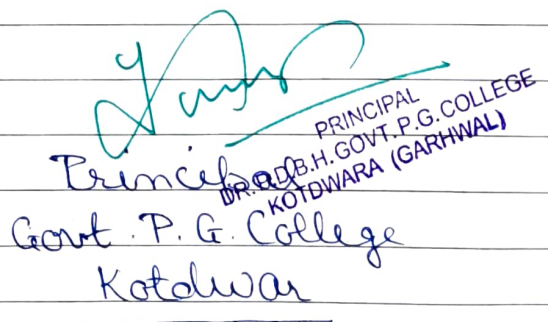 PRINCIPAL
DR. P.D.B.H. GOVT. P.G. COLLEGE
KOTDWARA (GARHWAL)
Principal
Govt. P. G. College
Kotdwar